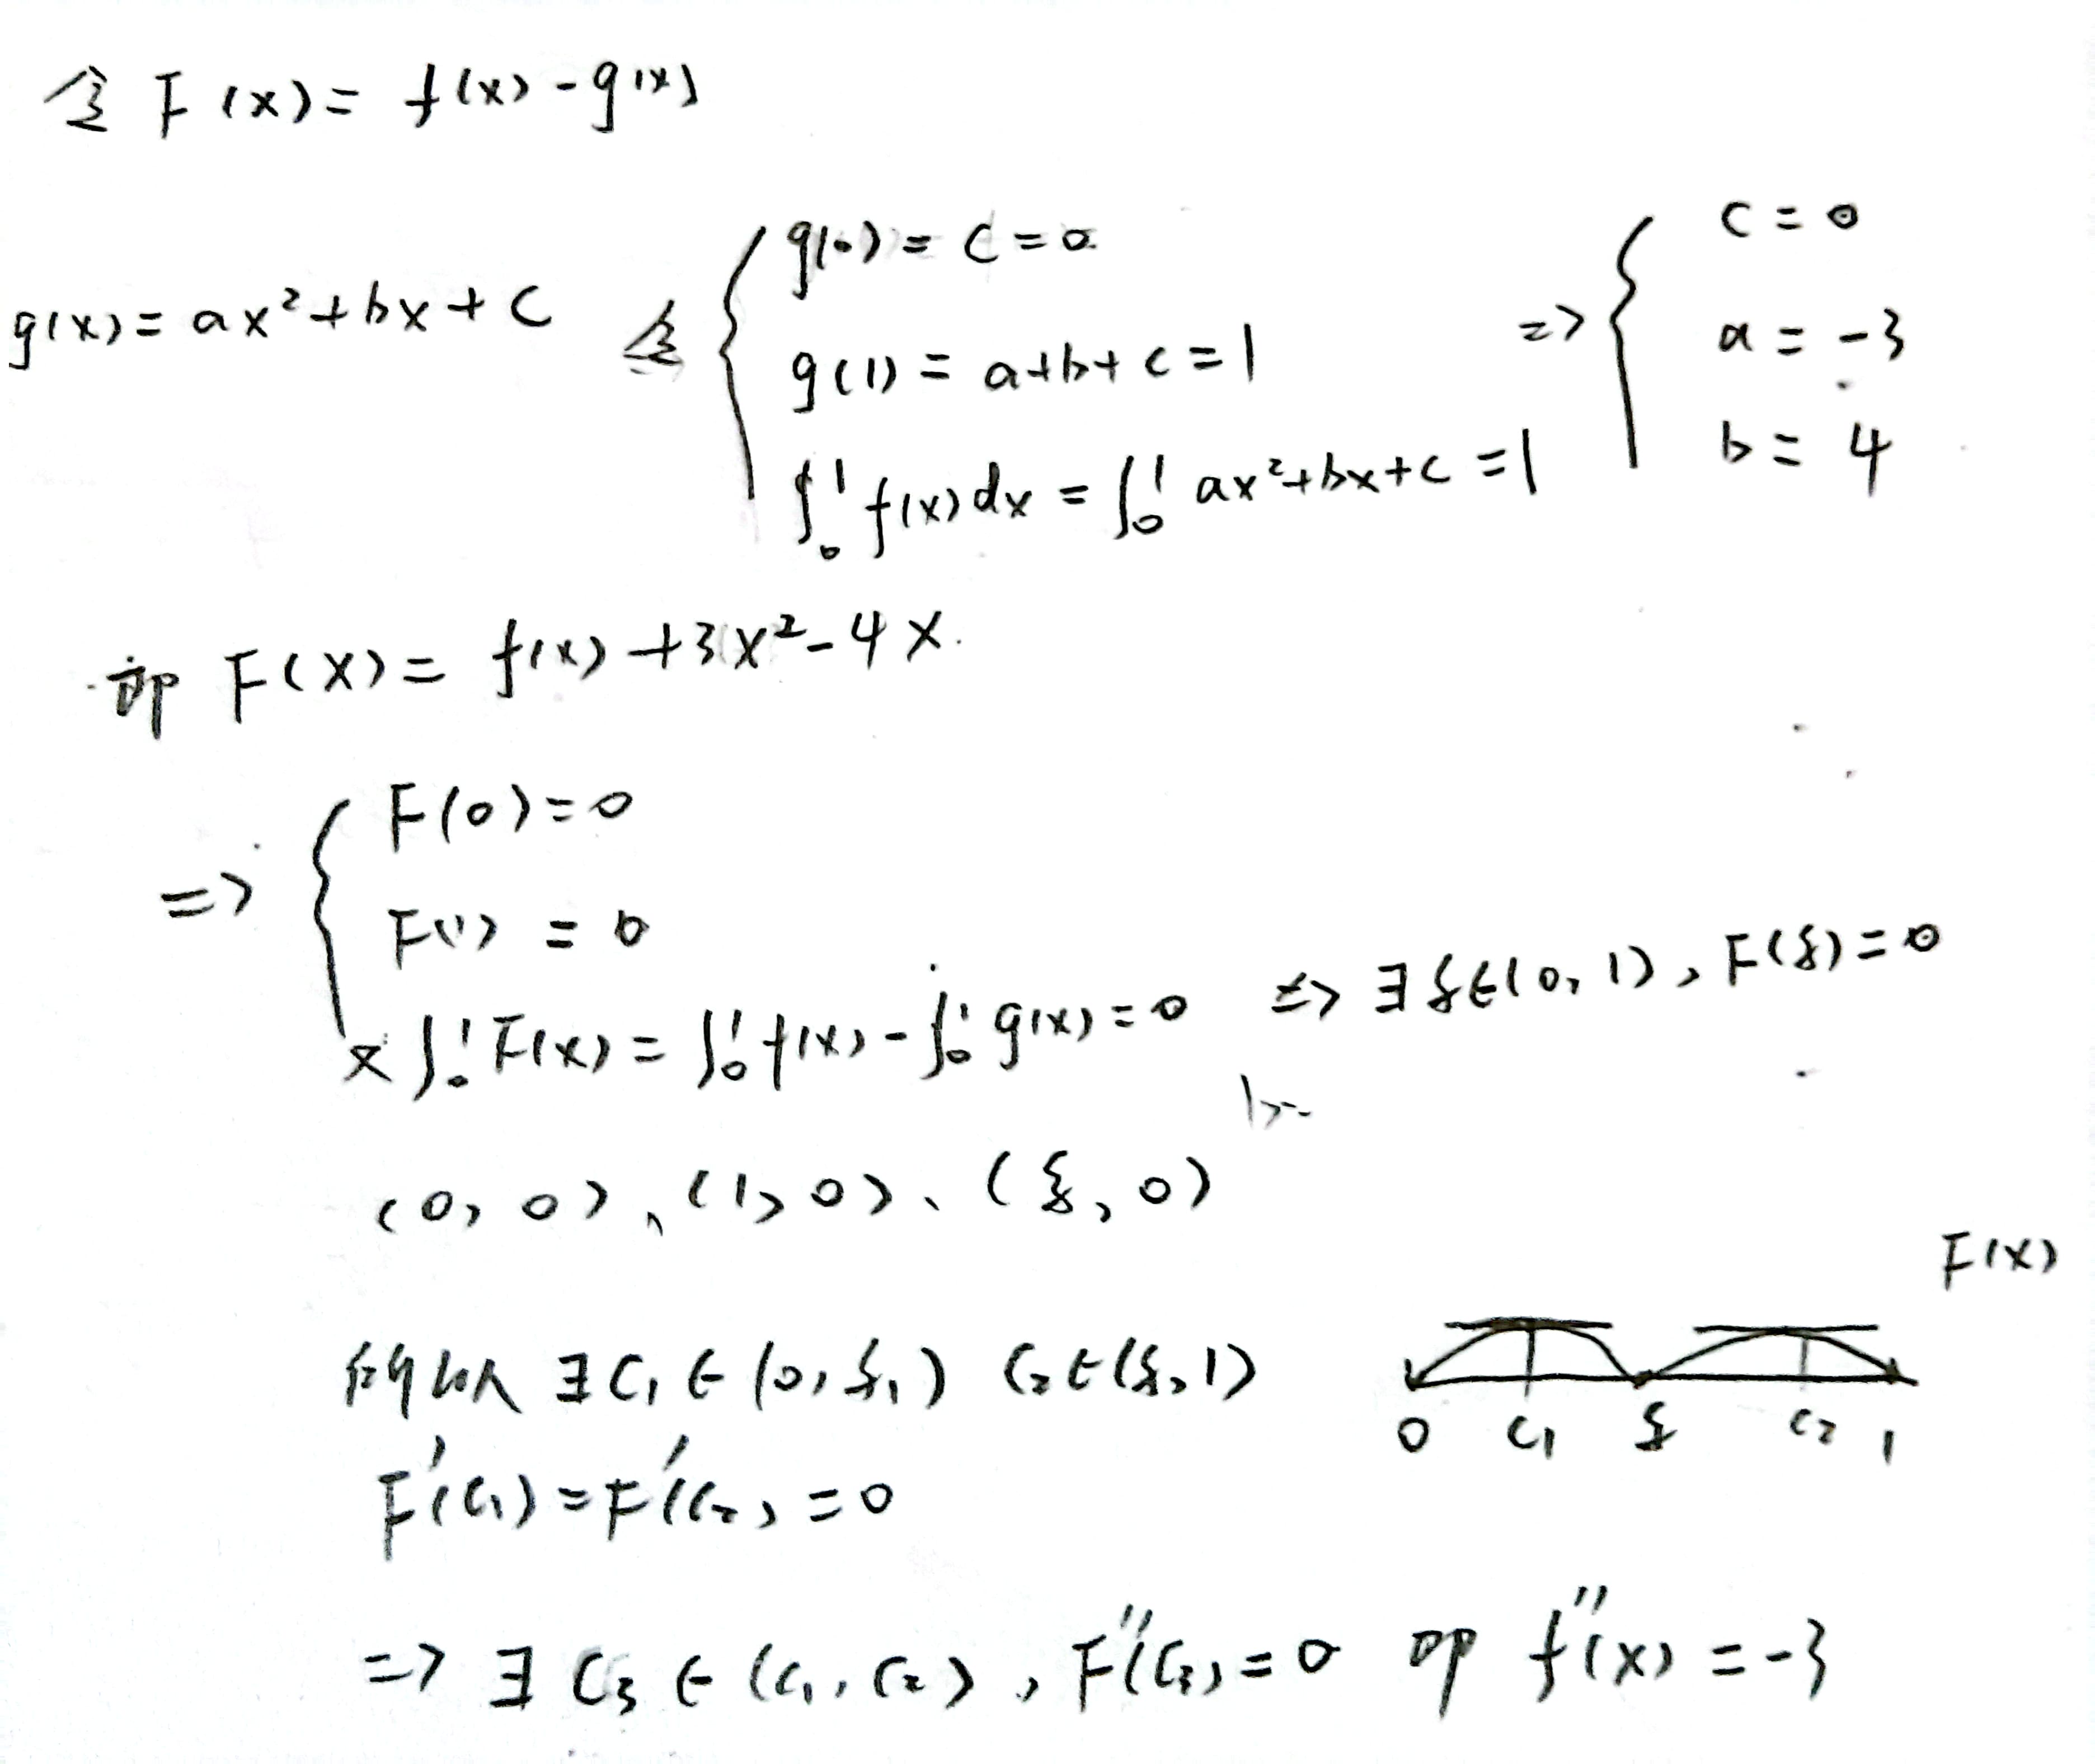 令 F(x) = f(x) - g(x)
g(x) = ax²+bx+c 令 { g(0) = c = 0
g(1) = a+b+c = 1
∫₀¹ f(x)dx = ∫₀¹ ax²+bx+c = 1
=> { c = 0
a = -3
b = 4
即 F(x) = f(x) +3x²-4x.
=> { F(0)=0
F(1) = 0
又 ∫₀¹ F(x) = ∫₀¹ f(x) - ∫₀¹ g(x) = 0 => ∃ ξ∈(0,1), F(ξ)=0
(0,0)、(1,0)、(ξ,0)
F(x)
∃ C₁ ∈ (0,ξ₁) C₂∈(ξ,1)
0 C₁ ξ C₂ 1
F'(C₁) = F'(C₂) = 0
=> ∃ C₃ ∈ (C₁,C₂), F''(C₃) = 0 即 f''(x) = -3